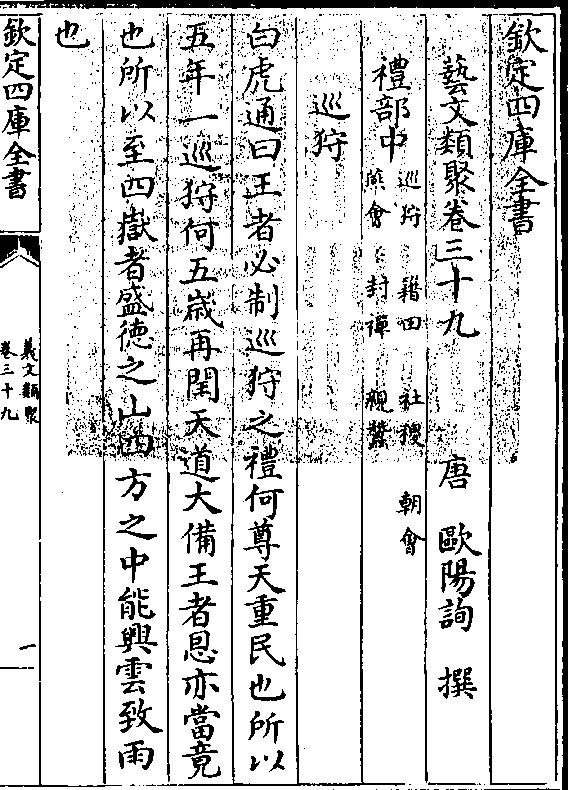 欽定四庫全書
藝文類聚卷三十九 唐 歐陽詢 撰
禮部中 巡狩 籍田 社稷 朝會
燕會 封禪 親蠶
巡狩
白虎通曰王者必制巡狩之禮何尊天重民也所以
五年一巡狩何五嵗再閏天道大備王者恩亦當竟
也所以至四嶽者盛徳之山四方之中能興雲致雨
也
欽定四庫全書
藝文類聚
卷三十九
一